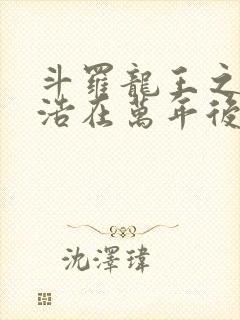 斗羅龍王之
浩在萬年後
沈澤瑋